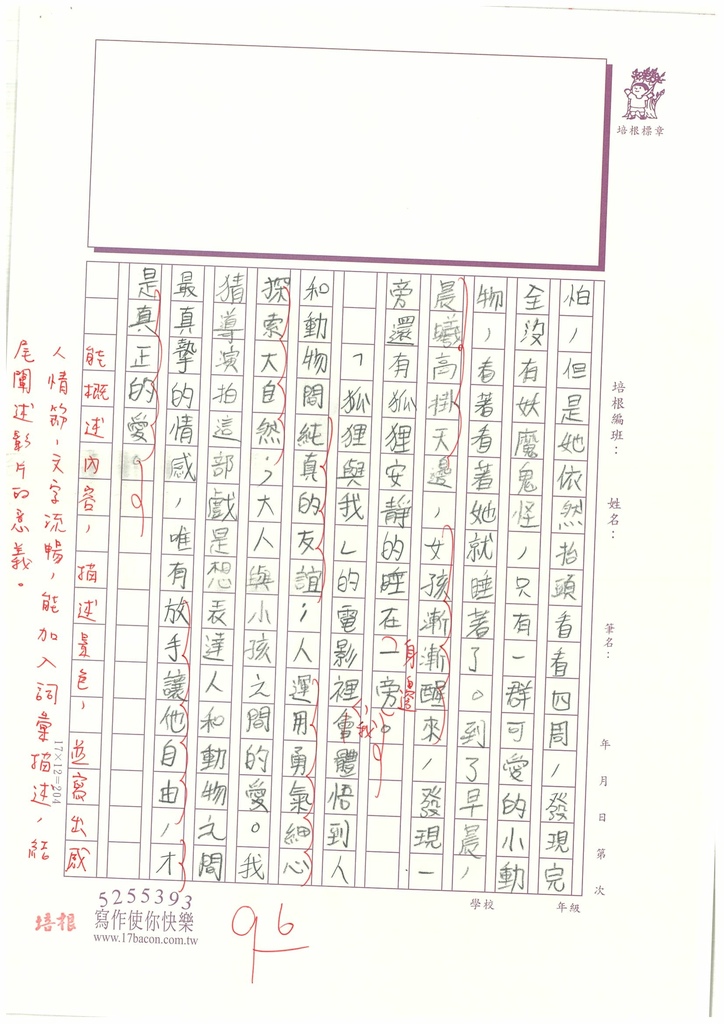 培根標章
培根編班：
姓名：
筆名：
年 月 日 第 次
學校
年級
怕，但是她依然抬頭看看四周，發現完
全沒有妖魔鬼怪，只有一群可愛的小動
物，看著看著她就睡著了。到了早晨，
晨曦高掛天邊，女孩漸漸醒來，發現一
旁還有狐狸安靜的睡在一旁。
身邊
「狐狸與我」的電影裡會體悟到人
我
和動物間純真的友誼；人運用勇氣細心
探索大自然；大人與小孩之間的愛。我
猜導演拍這部戲是想表達人和動物之間
最真摯的情感，唯有放手讓他自由，才
是真正的愛。
能概述內容，描述景色，並寫出感
人情節，文字流暢，能加入詞彙描述，結
尾闡述影片的意義。
17×12=204
培根
5255393
寫作使你快樂
www.17bacon.com.tw
96